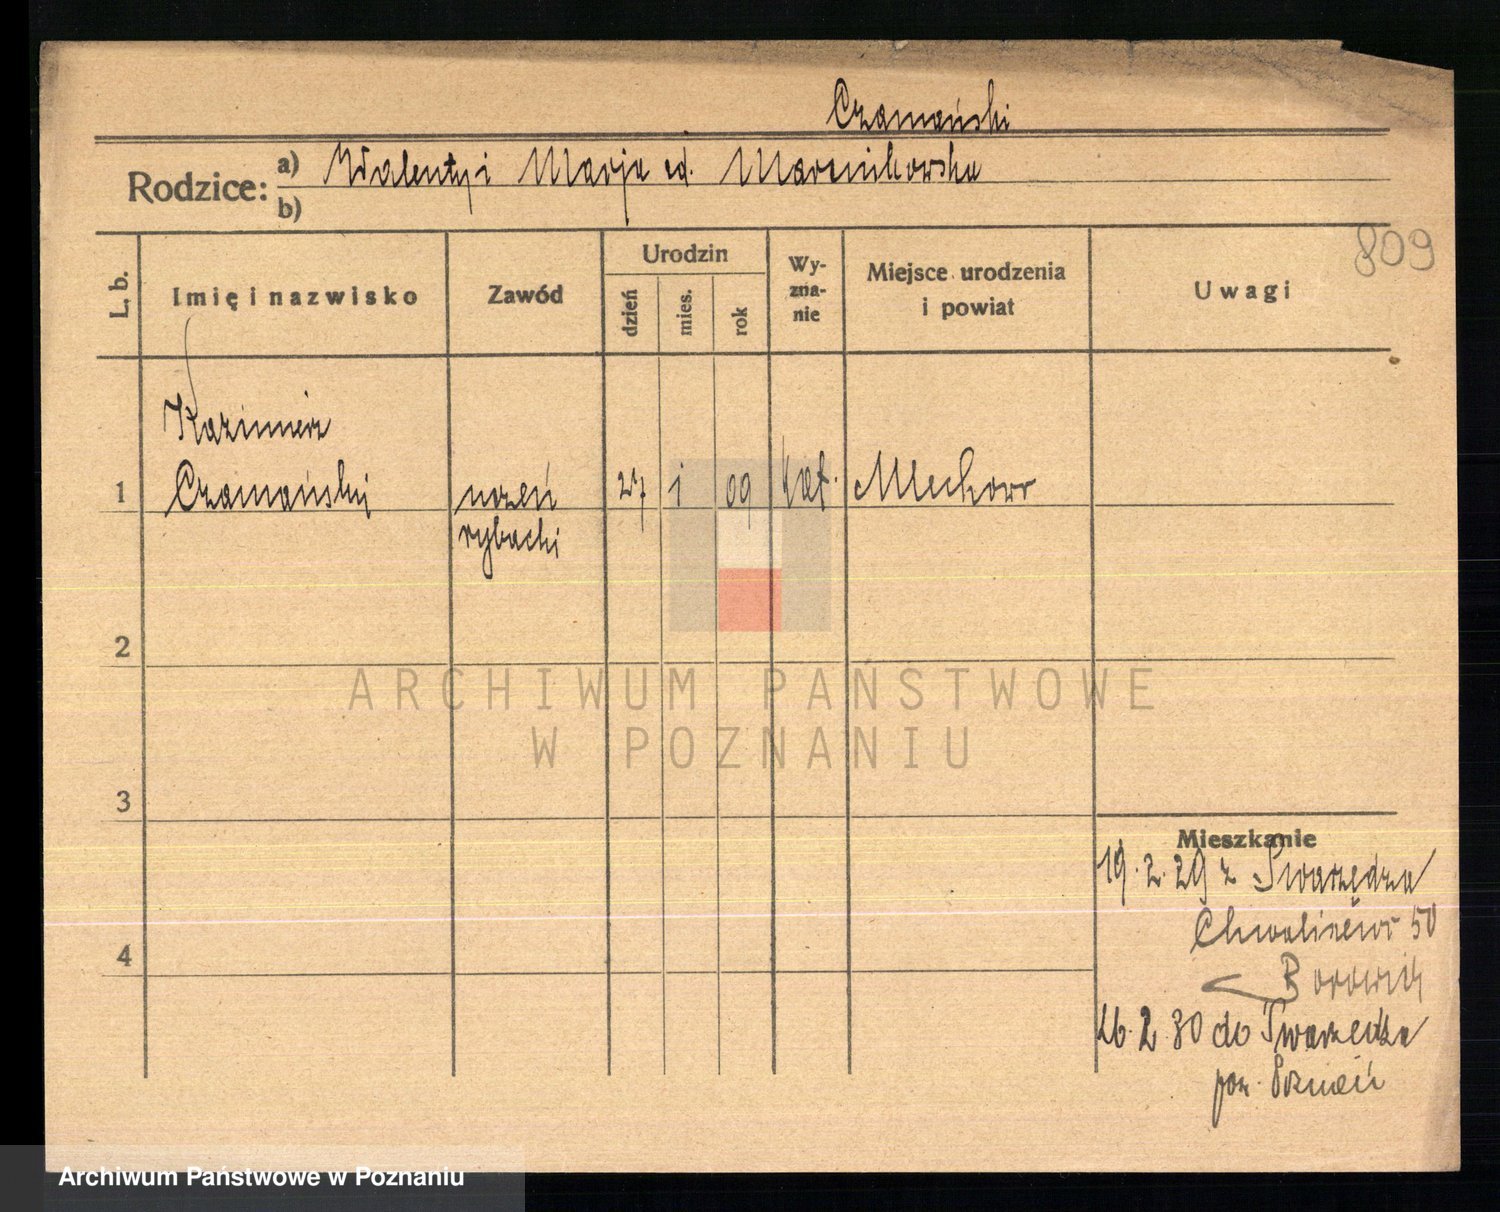 Czamański
Rodzice: a) Walenty i Marja
b)
809
L. b.
Imię i nazwisko
Zawód
Urodzin
dzień
mies.
rok
Wy-
zna-
nie
Miejsce urodzenia
i powiat
Uwagi
Kazimierz
1 Czamański uczeń 27 1 09 kat. Mechowo
rybacki
2
ARCHIWUM PAŃSTWOWE
W POZNANIU
3
Mieszkanie
19.2.29 z Swarzędza
50
4
26.2.30 do Swarzędza
Archiwum Państwowe w Poznaniu